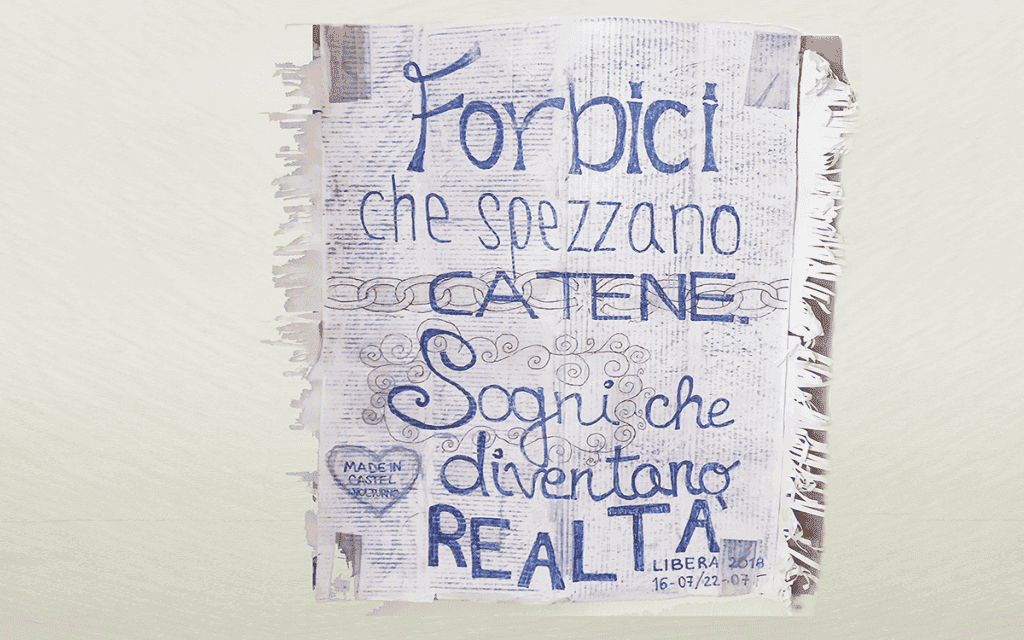 Forbici
che spezzano
CATENE.
Sogni che
diventano
REALTÀ
MADE IN
CASTEL
VOLTURNO
LIBERA 2018
16-07/22-07